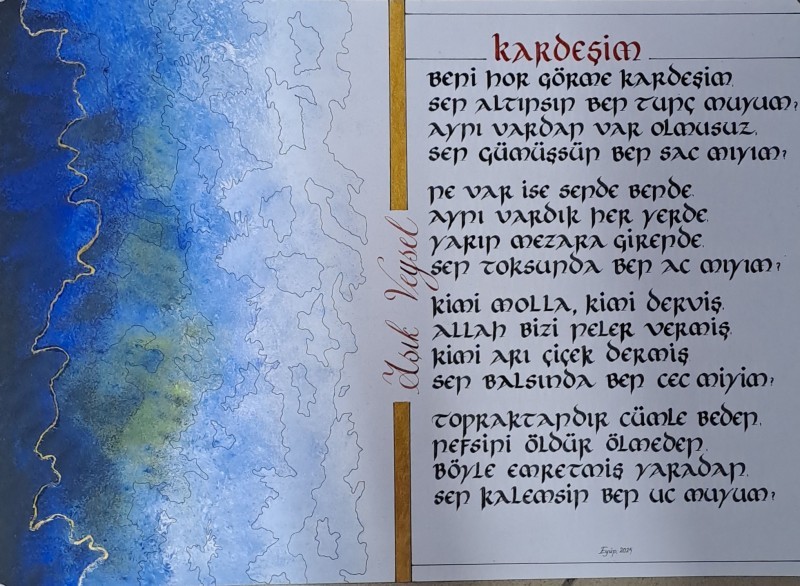 KARDEŞİM
BENİ HOR GÖRME KARDEŞİM.
SEN ALTINSIN BEN TUNÇ MUYUM?
AYNI VARDAN VAR OLMUŞUZ.
SEN GÜMÜŞSÜN BEN SAC MIYIM?
NE VAR İSE SENDE BENDE.
AYNI VARDIK HER YERDE.
YARIN MEZARA GİRENDE.
SEN TOKSUNDA BEN AC MIYIM?
KİMİ MOLLA, KİMİ DERVİŞ.
ALLAH BİZİ NELER VERMİŞ.
KİMİ ARI ÇİÇEK DERMİŞ
SEN BALSINDA BEN CEC MİYİM?
TOPRAKTANDIR CÜMLE BEDEN.
NEFSİNİ ÖLDÜR ÖLMEDEN.
BÖYLE EMRETMİŞ YARADAN.
SEN KALEMSİN BEN UC MUYUM?
Aşık Veysel
Eyüp, 2015